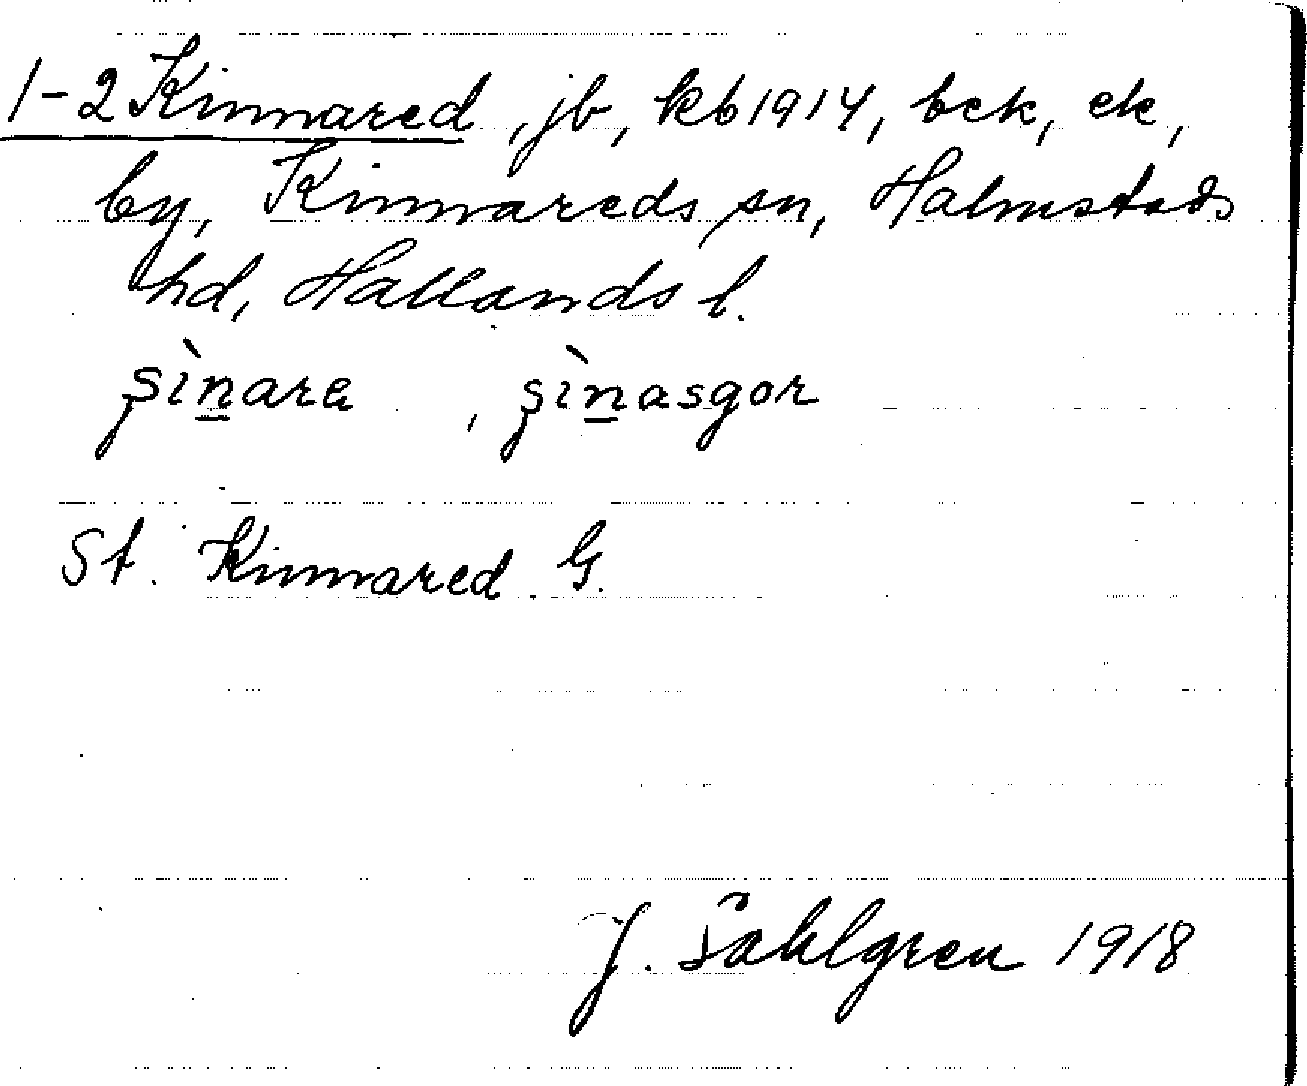 1-2 Kinnared, jb, kb 1914, bek, ek,
by, Kinnareds sn, Halmstads
hd, Hallands l.
St. Kinnared G.
J. Sahlgren 1918